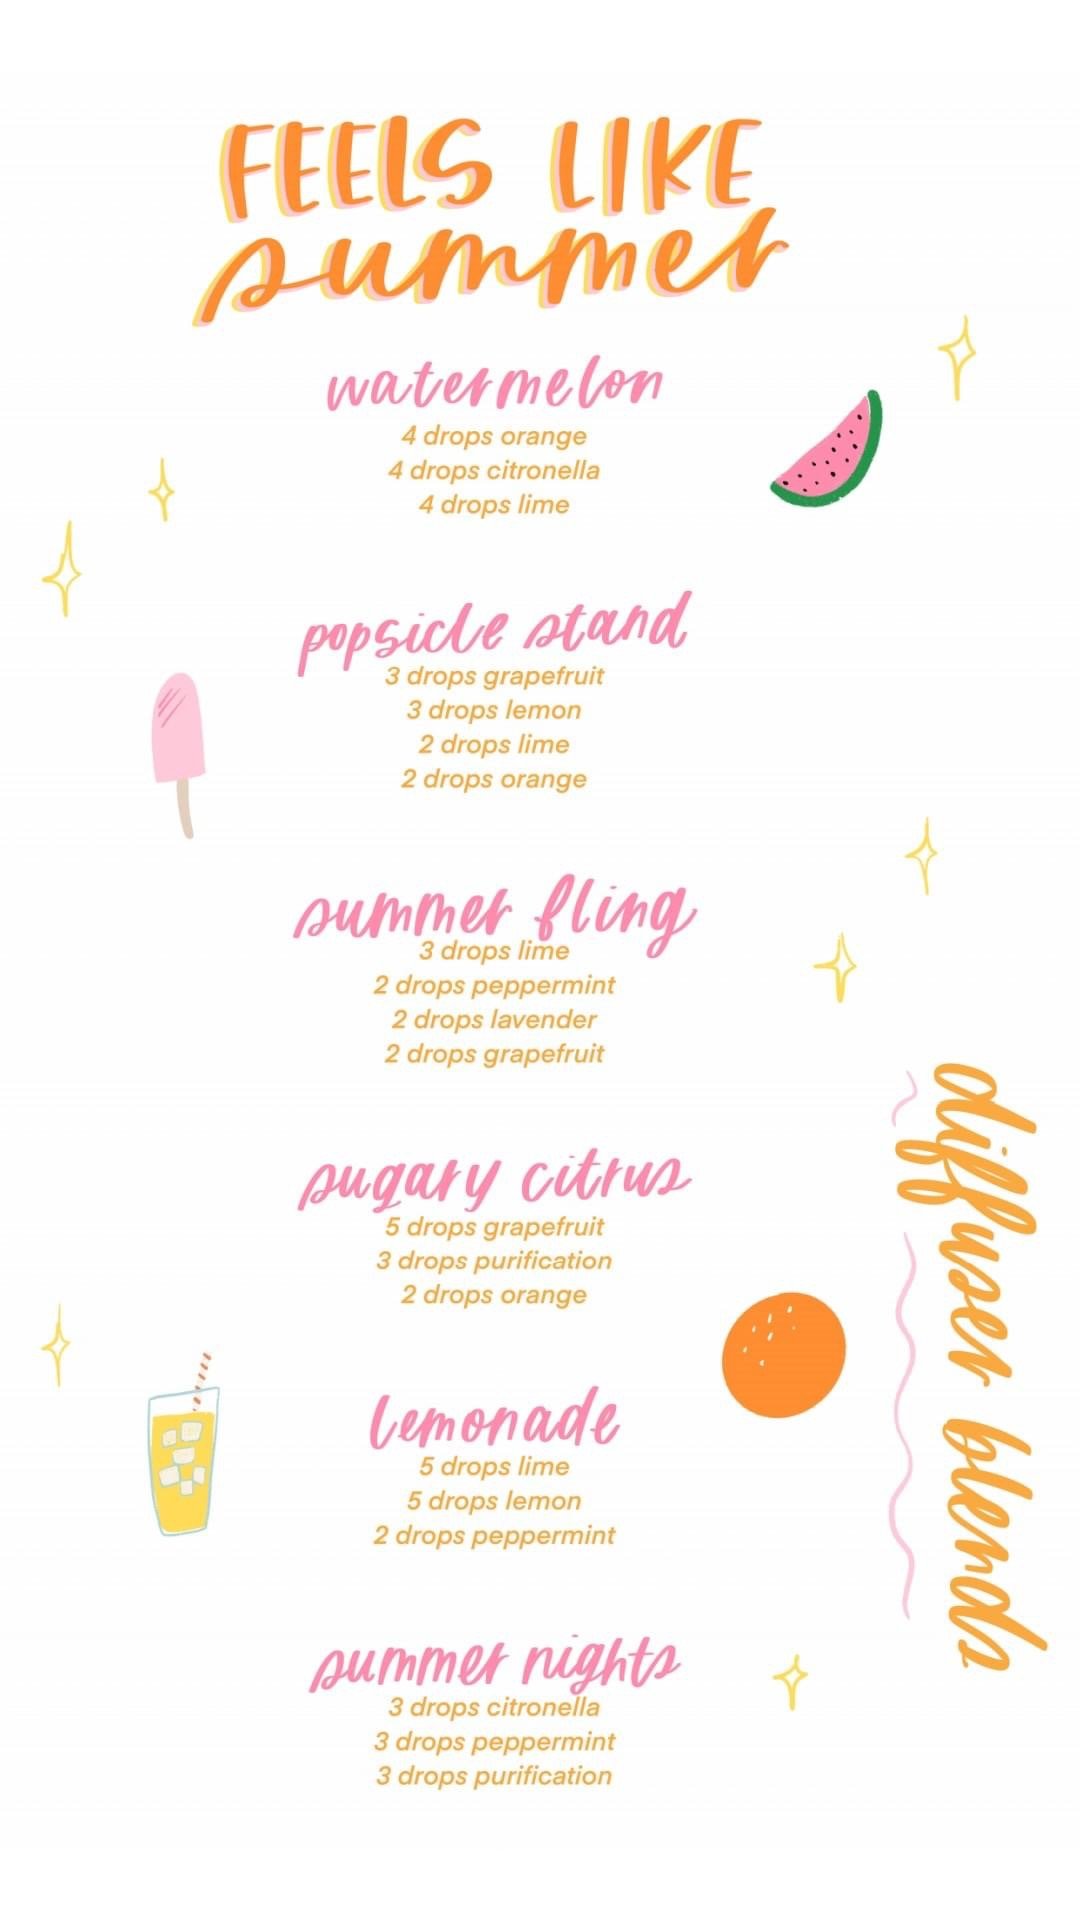 FEELS LIKE
summer
watermelon
4 drops orange
4 drops citronella
4 drops lime
popsicle stand
3 drops grapefruit
3 drops lemon
2 drops lime
2 drops orange
summer fling
3 drops lime
2 drops peppermint
2 drops lavender
2 drops grapefruit
sugary citrus
5 drops grapefruit
3 drops purification
2 drops orange
lemonade
5 drops lime
5 drops lemon
2 drops peppermint
summer nights
3 drops citronella
3 drops peppermint
3 drops purification
diffuser blends